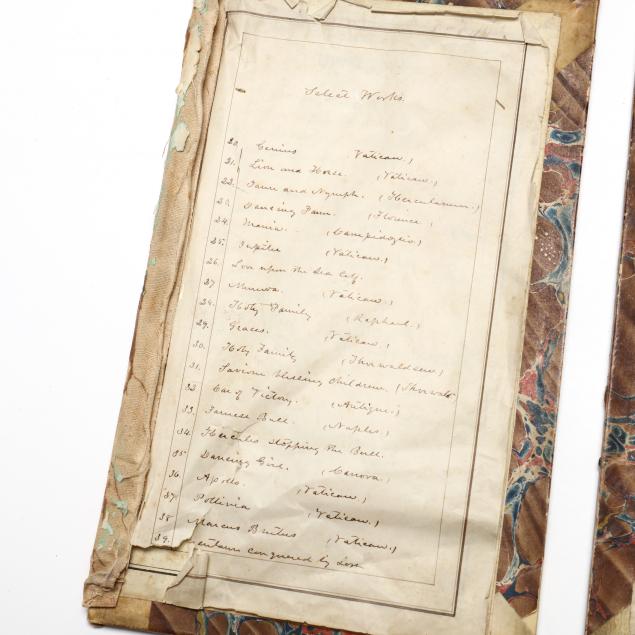 Select Works.
20. Genius (Vatican)
21. Lion and Horse. (Vatican.)
22. Faun and Nymph. (Herculaneum.)
23. Dancing Faun. (Florence.)
24. (Campidoglio)
25. Jupiter (Vatican.)
26. Love upon the Sea
27 Minerva. (Vatican.)
28. Holy Family (Raphael.)
29. Graces. (Vatican.)
30. Holy Family (Thorwaldsen)
31. Saviour Blessing Children. (Thorwald
32 Car of Victory. (Antique.)
33. Farnese Bull. (Naples)
34. Hercules stopping the Bull.
35. Dancing Girl. (Canova.)
36. Apollo. (Vatican)
37. (Vatican.)
38 Marcus Brutus (Vatican.)
39. entaur conquered by Love